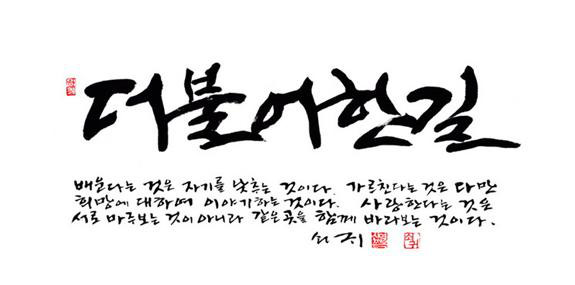 더불어한길
배운다는 것은 자기를 낮추는 것이다. 가르친다는 것은 다만
희망에 대하여 이야기하는 것이다. 사랑한다는 것은
서로 마주보는 것이 아니라 같은 곳을 함께 바라보는 것이다.
쇠귀